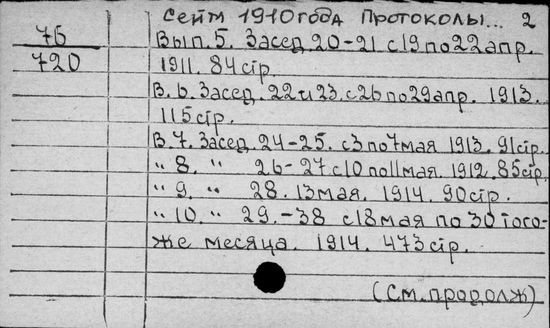 Сейм 1910 года Протоколы... 2
76 Вып. 5. Засед. 20-21 с 19 по 22 апр.
720 1911. 84 стр.
В. 6. Засед. 22 и 23. с 26 по 29 апр. 1913.
115 стр.
В. 7. Засед. 24-25. с 3 по 7 мая 1913. 91 стр.
" 8. " 26-27 с 10 по 11 мая. 1912. 85 стр.
" 9. " 28. 13 мая. 1914. 90 стр.
" 10. " 29.-38 с 18 мая по 30 того-
же месяца. 1914. 473 стр.
(См. продолж)